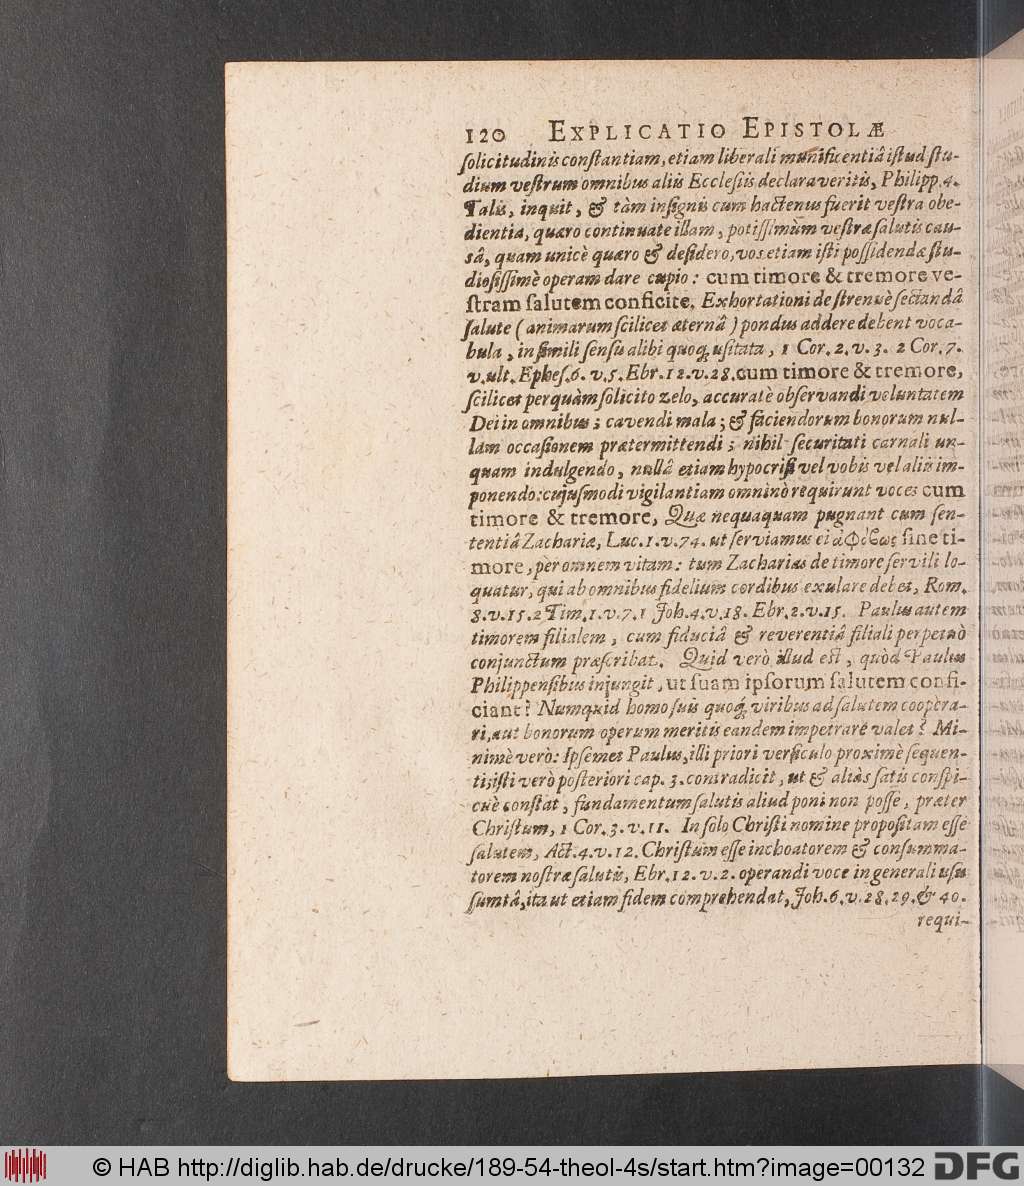 120 EXPLICATIO EPISTOLÆ
ſolicitudinis conſtantiam, etiam liberali munificentiâ iſtud ſtu-
dium veſtrum omnibus aliis Eccleſiis declaraveritis, Philipp. 4.
Talis, inquit, & tàm inſignis cum hactenus fuerit veſtra obe-
dientia, quæro continuate illam, potiſſimùm veſtræ ſalutis cau-
sâ, quam unicè quæro & deſidero, vos etiam iſti poſſidendæ ſtu-
dioſiſſimè operam dare cupio: cum timore & tremore ve-
ſtram ſalutem conficite. Exhortationi de ſtrenuè ſectandâ
ſalute (animarum ſcilicet æternâ) pondus addere debent voca-
bula, in ſimili ſenſu alibi quoq; uſitata, 1 Cor. 2. v. 3. 2 Cor. 7.
v. ult. Epheſ. 6. v. 5. Ebr. 12. v. 28. cum timore & tremore,
ſcilicet perquàm ſolicito zelo, accuratè obſervandi voluntatem
Dei in omnibus; cavendi mala; & faciendorum bonorum nul-
lam occaſionem prætermittendi; nihil ſecuritati carnali un-
quam indulgendo, nullâ etiam hypocriſi vel vobis vel aliis im-
ponendo: cujuſmodi vigilantiam omninò requirunt voces cum
timore & tremore, Quæ nequaquam pugnant cum ſen-
tentiâ Zachariæ, Luc. 1. v. 74. ut ſerviamus ei ἀφόβως ſine ti-
more, per omnem vitam: tum Zacharias de timore ſervili lo-
quatur, qui ab omnibus fidelium cordibus exulare debet, Rom.
8. v. 15. 2 Tim. 1. v. 7. 1 Joh. 4. v. 18. Ebr. 2. v. 15. Paulus autem
timorem filialem, cum fiduciâ & reverentiâ filiali perpetuò
conjunctum præſcribat. Quid verò illud eſt, quòd Paulus
Philippenſibus injungit, ut ſuam ipſorum ſalutem confi-
ciant? Numquid homo ſuis quoq; viribus ad ſalutem coopera-
ri, aut bonorum operum meritis eandem impetrare valet? Mi-
nimè verò: Ipſemet Paulus, illi priori verſiculo proximè ſequen-
ti; iſti verò poſteriori cap. 3. contradicit, ut & aliàs ſatis conſpi-
cuè conſtat, fundamentum ſalutis aliud poni non poſſe, præter
Chriſtum, 1 Cor. 3. v. 11. In ſolo Chriſti nomine propoſitam eſſe
ſalutem, Act. 4. v. 12. Chriſtum eſſe inchoatorem & conſumma-
torem noſtræ ſalutis, Ebr. 12. v. 2. operandi voce in generali uſu
ſumtâ, ita ut etiam fidem comprehendat, Joh. 6. v. 28. 29. & 40.
requi-
© HAB http://diglib.hab.de/drucke/189-54-theol-4s/start.htm?image=00132 DFG